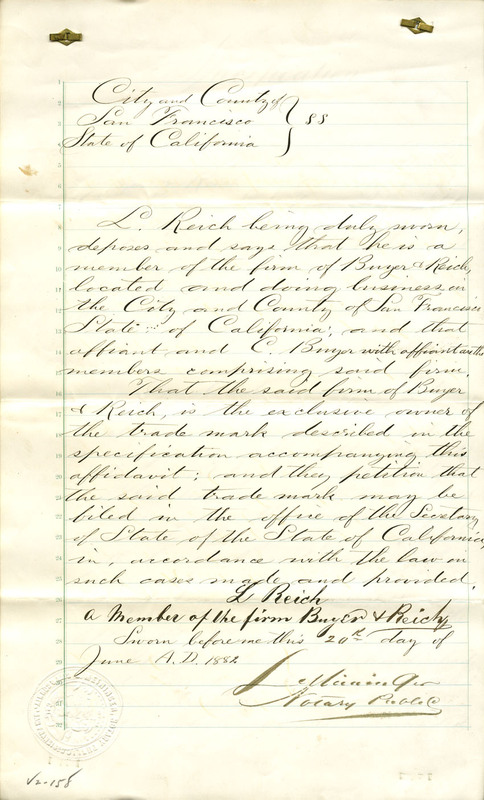 City and County of
San Francisco } SS
State of California
L. Reich being duly sworn,
deposes and says that he is a
member of the firm of Buyer & Reich,
located and doing business in
the City and County of San Francisco
State of California, and that
affiant and C. Buyer with affiant are the
members comprising said firm.
That the said firm of Buyer
& Reich, is the exclusive owner of
the trade mark described in the
specification accompanying this
affidavit; and they petition that
the said trade mark may be
filed in the office of the Secretary
of State of the State of California,
in, accordance with the law in
such cases made and provided.
L Reich
a Member of the firm Buyer & Reich
Sworn before me this 20th day of
June A.D. 1882
Notary Public
V2-158